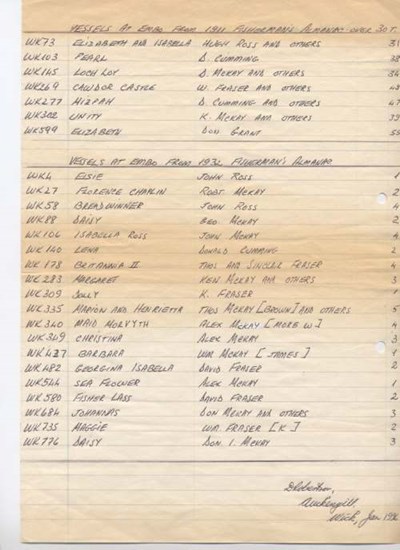 VESSELS AT EMBO FROM 1911 FISHERMAN'S ALMANAC OVER 30 T.
WK73 ELIZABETH AND ISABELLA HUGH ROSS AND OTHERS
WK103 PEARL D. CUMMING
WK145 LOCH LOY D. MCKAY AND OTHERS
WK269 CAWDOR CASTLE W. FRASER AND OTHERS
WK277 MIZPAH D. CUMMING AND OTHERS
WK302 UNITY K. MCKAY AND OTHERS
WK599 ELIZABETH DON GRANT
VESSELS AT EMBO FROM 1932 FISHERMAN'S ALMANAC
WK4 ELSIE JOHN ROSS 1
WK27 FLORENCE CHAPLIN ROBT MCKAY 2
WK58 BREADWINNER JOHN ROSS 4
WK88 DAISY GEO. MCKAY 2
WK106 ISABELLA ROSS JOHN MCKAY 4
WK140 LENA DONALD CUMMING 2
WK178 BRITANNIA II THOS AND SINCLAIR FRASER 4
WK283 MARGARET KEN MCKAY AND OTHERS 3
WK309 JOLLY K. FRASER
WK335 MARION AND HENRIETTA THOS MCKAY [BROWN] AND OTHERS 5
WK340 MAID MORVYTH ALEX MCKAY [MORE W.] 4
WK369 CHRISTINA ALEX MCKAY 3
WK427 BARBARA WM. MCKAY [JAMES]
WK482 GEORGINA ISABELLA DAVID FRASER 2
WK544 SEA FLOWER ALEX MCKAY 1
WK580 FISHER LASS DAVID FRASER 2
WK684 JOHANNAS DON MCKAY AND OTHERS 3
WK735 MAGGIE WM. FRASER [K.] 2
WK776 DAISY DON. I. MCKAY 3
Auckengill
Wick, Jan